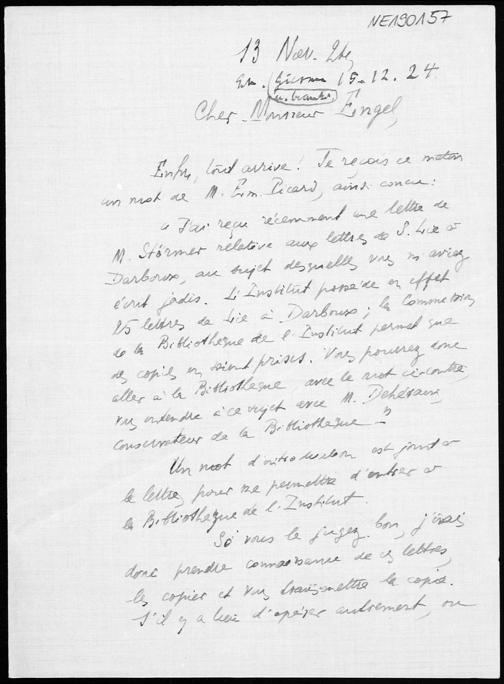 NE190157
13 Nov. 24
15.12.24
Cher Monsieur Engel,
Enfin, tout arrive! Je reçois ce matin
un mot de M. Em. Picard, ainsi conçu:
"J'ai reçu récemment une lettre de
M. Störmer relative aux lettres de S. Lie à
Darboux, au sujet desquelles vous m'aviez
écrit jadis. L'Institut possède en effet
lettres de Lie à Darboux; la Commission
de la Bibliothèque de l'Institut permet que
des copies en soient prises. Vous pourrez donc
aller à la Bibliothèque, avec le mot ci-contre,
vous entendre à ce sujet avec M. Dehérain,
conservateur de la Bibliothèque"
Un mot d'introduction est joint à
la lettre, pour me permettre d'entrer à
la Bibliothèque de l'Institut.
Si vous le jugez bon, j'irais
donc prendre connaissance de ces lettres,
les copier et vous transmettre la copie.
S'il y a lieu d'opérer autrement, ou